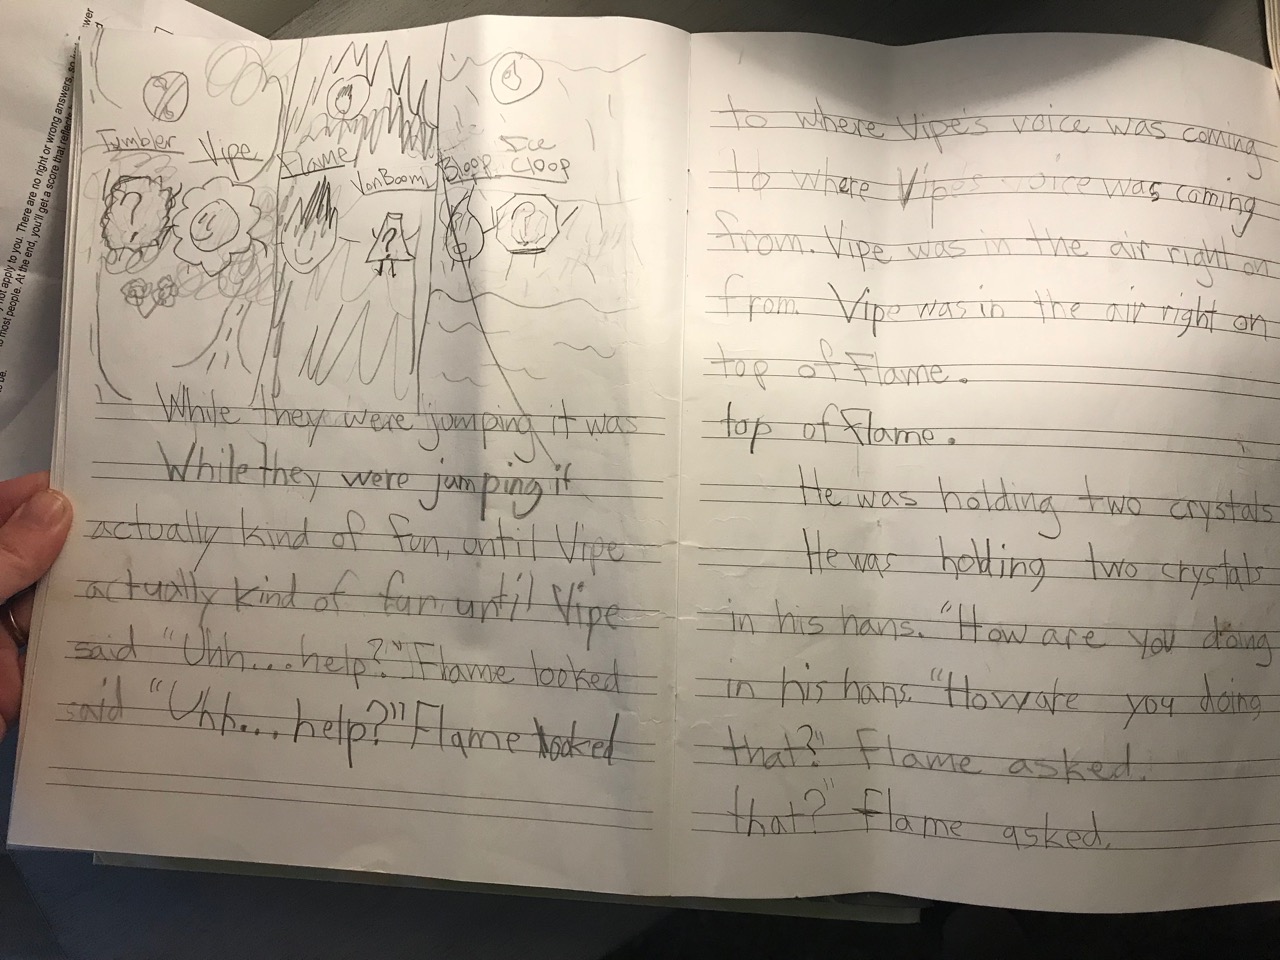 Tumbler
Vipe
?
Flame
VonBoom
?
Ice
Bloop Cloop
?
While they were jumping it was
While they were jumping it
actually kind of fun, until Vipe
actually kind of fun, until Vipe
said "Uhh... help?" Flame looked
said "Uhh... help?" Flame looked
to where Vipe's voice was coming
to where Vipe's voice was coming
from. Vipe was in the air right on
from. Vipe was in the air right on
top of Flame.
top of Flame.
He was holding two crystals
He was holding two crystals
in his hans. "How are you doing
in his hans. "How are you doing
that?" Flame asked.
that?" Flame asked.
not apply to you. There are no right or wrong answers, so
most people. At the end, you'll get a score that reflects